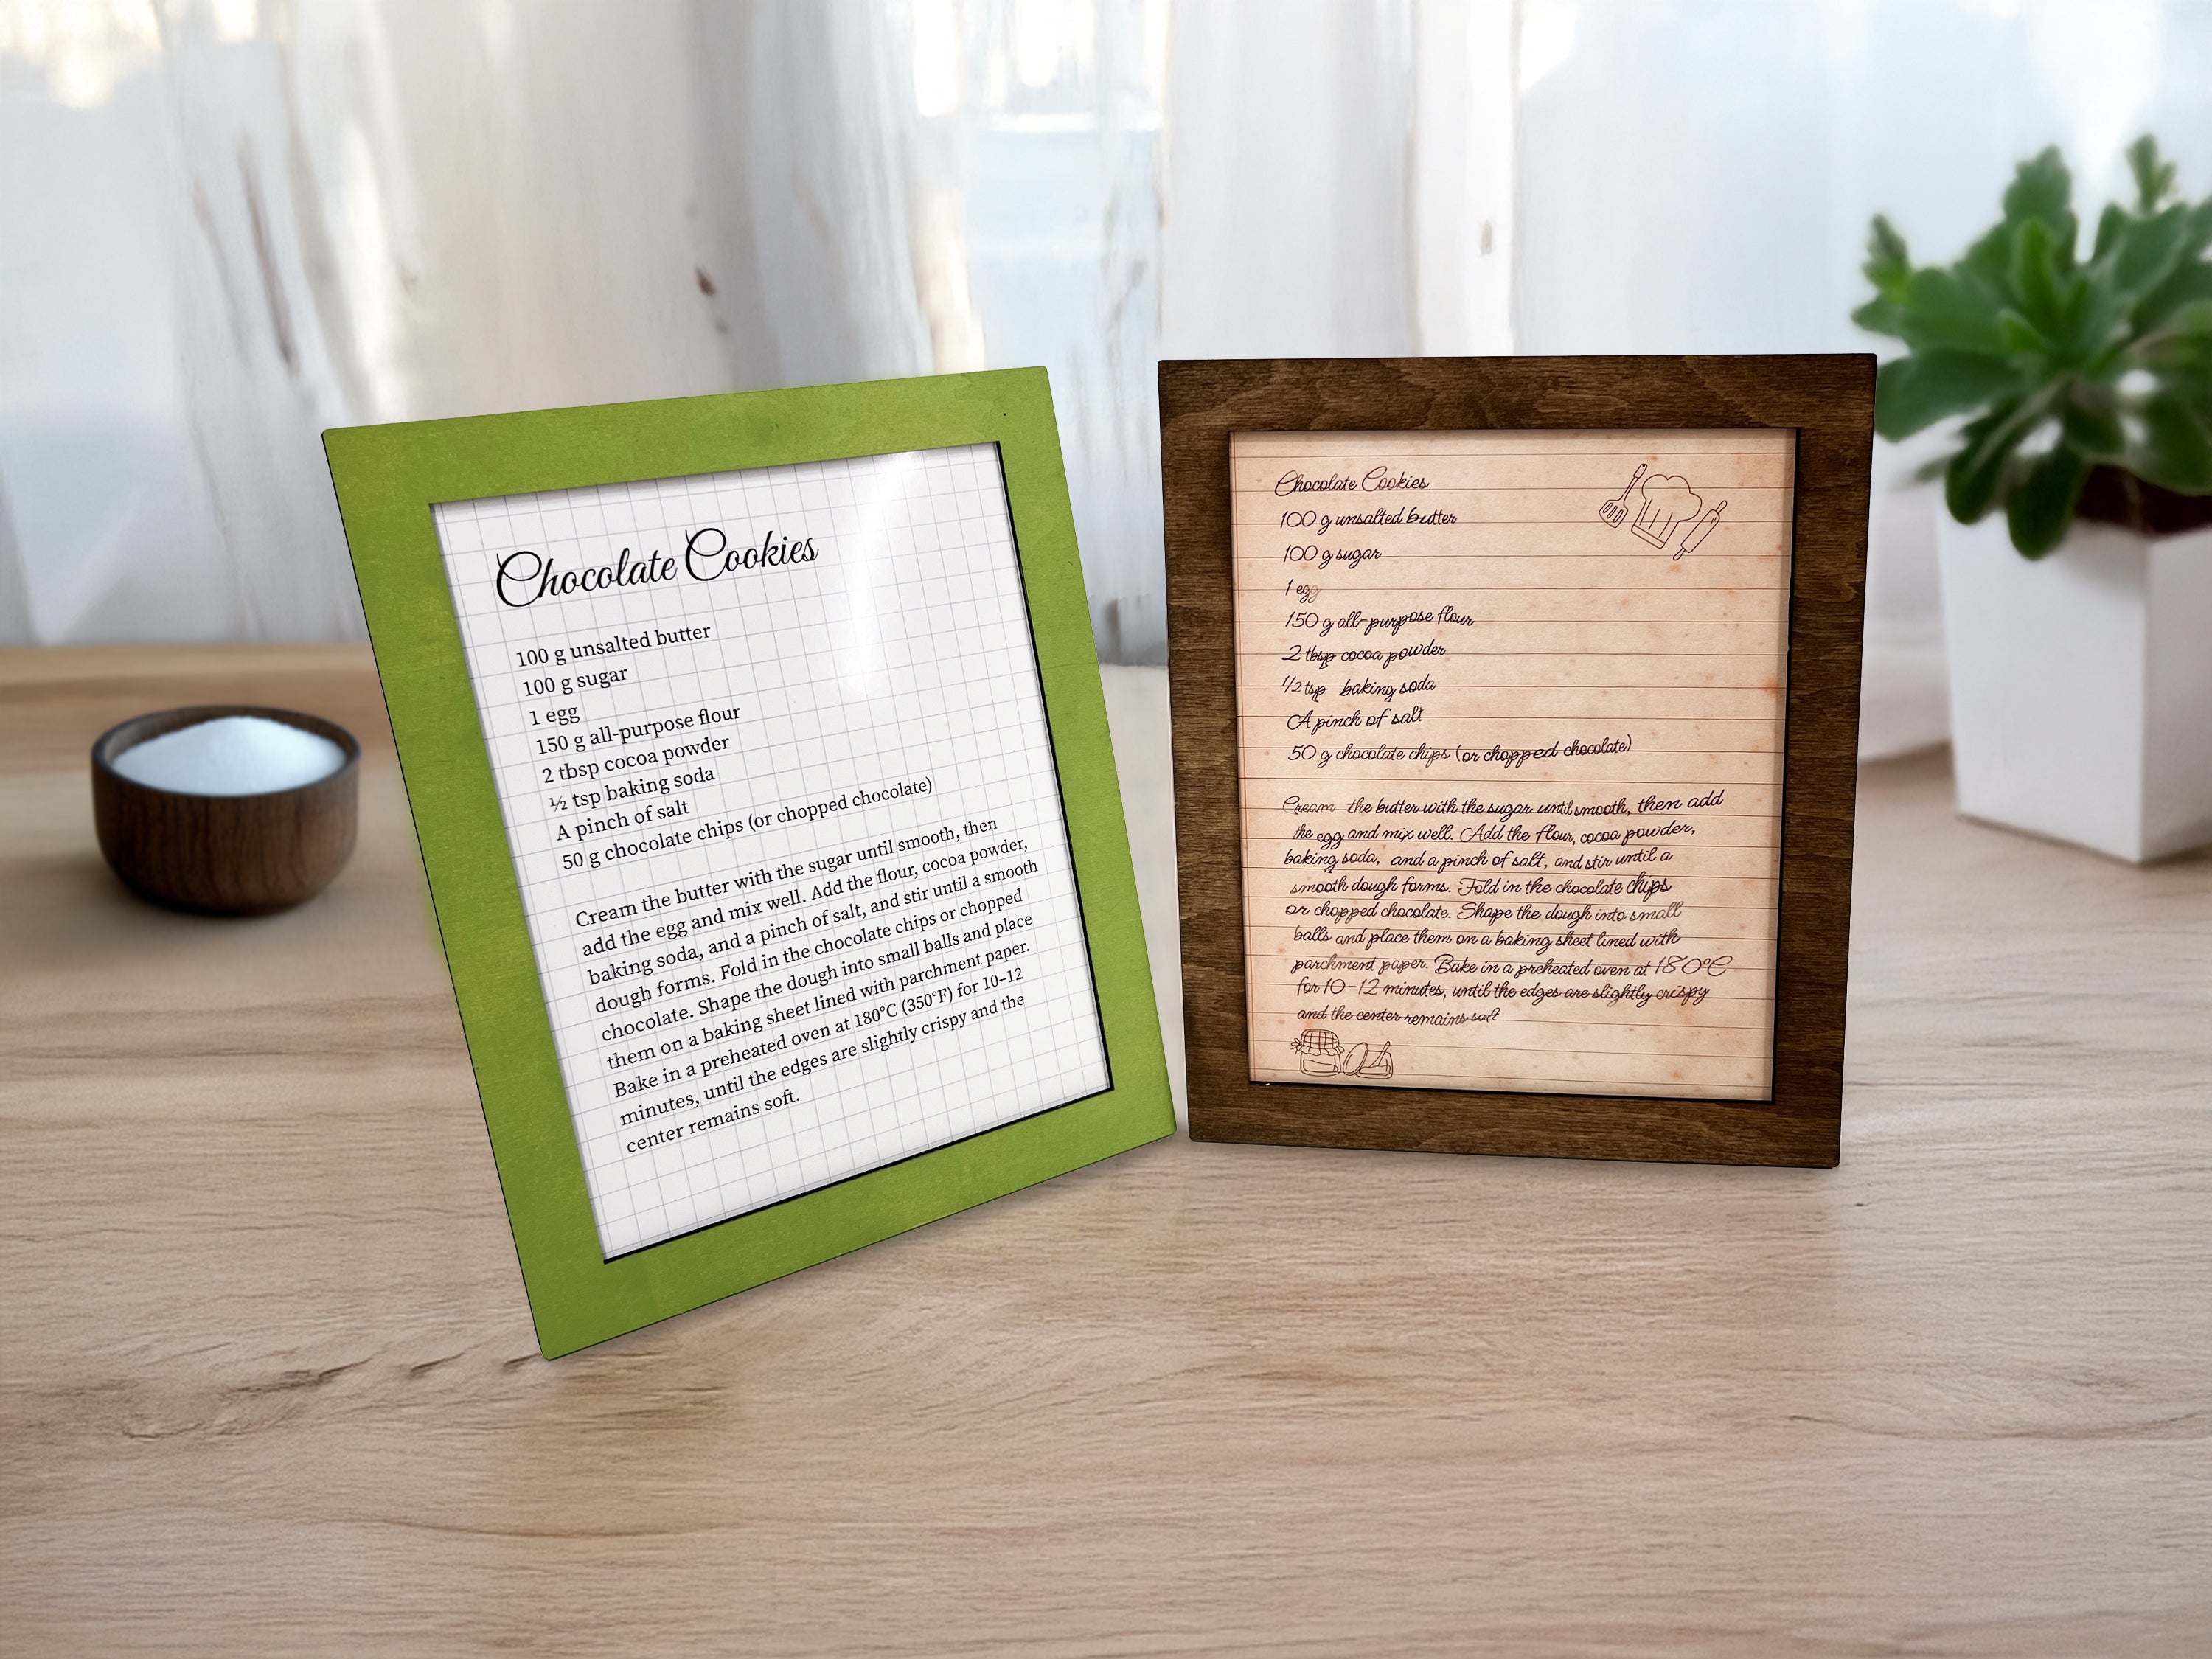 Chocolate Cookies
100 g unsalted butter
100 g sugar
1 egg
150 g all-purpose flour
2 tbsp cocoa powder
½ tsp baking soda
A pinch of salt
50 g chocolate chips (or chopped chocolate)
Cream the butter with the sugar until smooth, then
add the egg and mix well. Add the flour, cocoa powder,
baking soda, and a pinch of salt, and stir until a smooth
dough forms. Fold in the chocolate chips or chopped
chocolate. Shape the dough into small balls and place
them on a baking sheet lined with parchment paper.
Bake in a preheated oven at 180°C (350°F) for 10–12
minutes, until the edges are slightly crispy and the
center remains soft.
Chocolate Cookies
100 g unsalted butter
100 g sugar
1 egg
150 g all-purpose flour
2 tbsp cocoa powder
1/2 tsp baking soda
A pinch of salt
50 g chocolate chips (or chopped chocolate)
Cream the butter with the sugar until smooth, then add
the egg and mix well. Add the flour, cocoa powder,
baking soda, and a pinch of salt, and stir until a
smooth dough forms. Fold in the chocolate chips
or chopped chocolate. Shape the dough into small
balls and place them on a baking sheet lined with
parchment paper. Bake in a preheated oven at 180°C
for 10-12 minutes, until the edges are slightly crispy
and the center remains soft